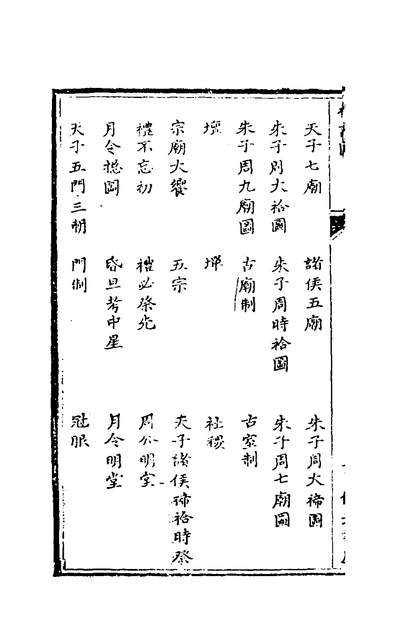 天子七廟　諸侯五廟　朱子周大禘圖
朱子周大祫圖　朱子周時祫圖　朱子周七廟圖
朱子周九廟圖　古廟制　古室制
壇　墠　社稷
宗廟大饗　五宗　天子諸侯禘祫時祭
禮不忘初　禮必祭先　周公明堂
月令總圖　昏旦考中星　月令明堂
天子五門三朝　門制　冠服